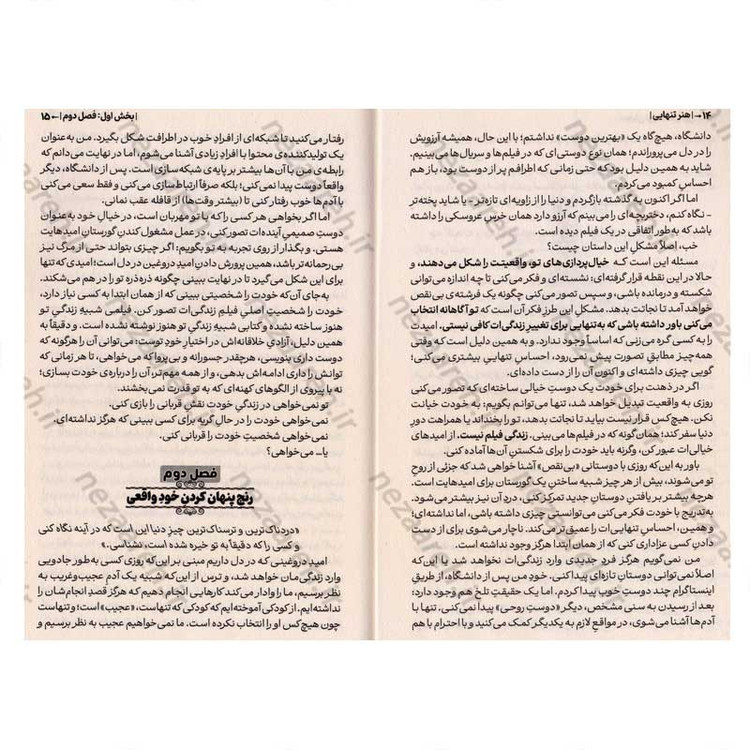 ۱۴→ | هنر تنهایی |
دانشگاه، هیچ‌گاه یک «بهترین دوست» نداشتم؛ با این حال، همیشه آرزویش
را در دل می‌پروراندم؛ همان نوع دوستی‌ای که در فیلم‌ها و سریال‌ها می‌بینیم.
شاید به همین دلیل بود که حتی زمانی که اطرافم پر از دوست بود، باز هم
احساس کمبود می‌کردم.
اما اگر اکنون به گذشته بازگردم و دنیا را از زاویه‌ای تازه‌تر - یا شاید پخته‌تر
- نگاه کنم، دختربچه‌ای را می‌بینم که آرزو دارد همان خرسِ عروسکی را داشته
باشد که به‌طور اتفاقی در یک فیلم دیده است.
خب، اصلاً مشکلِ این داستان چیست؟
مسئله این است که خیال‌پردازی‌های تو، واقعیتت را شکل می‌دهند، و
حالا در این نقطه قرار گرفته‌ای: نشسته‌ای و فکر می‌کنی تا چه اندازه می‌توانی
شکسته و درمانده باشی، و سپس تصور می‌کنی چگونه فرشته‌ای بی‌نقص
خواهد آمد تا نجاتت بدهد. مشکلِ این طرز فکر آن است که تو آگاهانه انتخاب
می‌کنی باور داشته باشی که به‌تنهایی برای تغییرِ زندگی‌ات کافی نیستی. امیدت
را به کسی گره می‌زنی که اساساً وجود ندارد. و به همین دلیل است که وقتی
همه‌چیز مطابقِ تصورت پیش نمی‌رود، احساسِ تنهاییِ بیشتری می‌کنی؛
گویی چیزی داشته‌ای که ناگهان آن را از دست داده‌ای.
اگر در ذهنت برای خودت یک دوستِ خیالی ساخته‌ای که تصور می‌کنی
روزی به واقعیت تبدیل خواهد شد، تنها می‌توانم بگویم: به خودت خیانت
نکن. هیچ‌کس قرار نیست بیاید تا نجاتت بدهد، تو را بخنداند یا همراهت دورِ
دنیا سفر کند؛ همان‌گونه که در فیلم‌ها می‌بینی. زندگی فیلم نیست. از امیدهای
خیالی‌ات عبور کن، وگرنه باید خودت را برای شکستنِ آن‌ها آماده کنی.
باور به این‌که روزی با دوستانی «بی‌نقص» آشنا خواهی شد که جزئی از روحِ
تو می‌شوند، بیش از هر چیز شبیه ساختنِ یک گورستان برای امیدهاست.
هرچه بیشتر بر یافتنِ دوستانِ جدید تمرکز کنی، دردِ آن نیز بیشتر می‌شود.
به‌تدریج با خودت فکر می‌کنی که می‌توانستی چیزی داشته باشی، اما نداشته‌ای؛
و همین، احساسِ تنهایی‌ات را عمیق‌تر می‌کند. ناچار می‌شوی برای از دست
دادنِ کسی عزاداری کنی که از همان ابتدا هرگز وجود نداشته است.
من نمی‌گویم هرگز فردِ جدیدی واردِ زندگی‌ات نخواهد شد یا این‌که
اصلاً نمی‌توانی دوستانِ تازه‌ای پیدا کنی. خودِ من پس از دانشگاه، از طریقِ
اینستاگرام چند دوستِ خوب پیدا کردم. اما یک حقیقتِ تلخ هم وجود دارد:
بعد از رسیدن به سنی مشخص، دیگر «دوستِ روحی» پیدا نمی‌کنی. تنها با
آدم‌ها آشنا می‌شوی، در مواقعِ لازم به یکدیگر کمک می‌کنید و با احترام با هم
| بخش اول: فصل دوم | ←۱۵
رفتار می‌کنید تا شبکه‌ای از افرادِ خوب در اطرافت شکل بگیرد. من به‌عنوان
یک تولیدکننده‌ی محتوا با افرادِ زیادی آشنا می‌شوم، اما در نهایت می‌دانم که
رابطه‌ی من با آن‌ها بیشتر بر پایه‌ی شبکه‌سازی است. پس از دانشگاه، دیگر
واقعاً دوست پیدا نمی‌کنی؛ بلکه صرفاً ارتباط‌سازی می‌کنی و فقط سعی می‌کنی
با آدم‌ها خوب رفتار کنی تا (بیشتر وقت‌ها) از قافله عقب نمانی.
اما اگر بخواهی هر کسی را که با تو مهربان است، در خیالِ خود به‌عنوان
دوستِ صمیمیِ آینده‌ات تصور کنی، در عمل مشغول کندنِ گورستانِ امیدهایت
هستی. و بگذار از روی تجربه به تو بگویم: اگر چیزی بتواند حتی از مرگ نیز
بی‌رحمانه‌تر باشد، همین پرورش دادنِ امیدِ دروغین در دل است؛ امیدی که تنها
برای این شکل می‌گیرد تا در نهایت ببینی چگونه ذره‌ذره تو را در هم می‌شکند.
به‌جای آن‌که خودت را شخصیتی ببینی که از همان ابتدا به کسی نیاز دارد،
خودت را شخصیتِ اصلیِ فیلمِ زندگی‌ات تصور کن. فیلمی شبیهِ زندگیِ تو
هنوز ساخته نشده و کتابی شبیهِ زندگیِ تو هنوز نوشته نشده است. و دقیقاً به
همین دلیل، آزادیِ خلاقانه‌اش در اختیارِ خودِ توست: می‌توانی آن را هرگونه که
دوست داری بنویسی، هرچقدر جسورانه و بی‌پروا که می‌خواهی، تا هر زمانی که
توانش را داری ادامه‌اش بدهی، و از همه مهم‌تر آن را درباره‌ی خودت بسازی؛
نه با پیروی از الگوهای کهنه‌ای که به تو قدرت نمی‌بخشند.
تو نمی‌خواهی در زندگیِ خودت نقشِ قربانی را بازی کنی.
نمی‌خواهی خودت را در حالِ گریه برای کسی ببینی که هرگز نداشته‌ای.
نمی‌خواهی شخصیتِ خودت را قربانی کنی.
یا... می‌خواهی؟
فصل دوم
رنجِ پنهان کردنِ خودِ واقعی
«دردناک‌ترین و ترسناک‌ترین چیزِ دنیا این است که در آینه نگاه کنی
و کسی را که دقیقاً به تو خیره شده است، نشناسی.»
امیدِ دروغینی که در دل داریم مبنی بر این‌که روزی کسی به‌طور جادویی
واردِ زندگی‌مان خواهد شد، و ترس از این‌که شبیه یک آدمِ عجیب‌وغریب به
نظر برسیم، ما را وادار می‌کند کارهایی انجام دهیم که هرگز قصدِ انجامشان را
نداشته‌ایم. از کودکی آموخته‌ایم که کودکی که تنهاست، «عجیب» است؛ و تنهاست
چون هیچ‌کس او را انتخاب نکرده است. ما نمی‌خواهیم عجیب به نظر برسیم و
nezaareh.ir